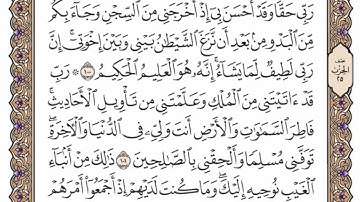 رَبِّي حَقًّا وَقَدْ أَحْسَنَ بِي إِذْ أَخْرَجَنِي مِنَ ٱلسِّجْنِ وَجَآءَ بِكُم
مِّنَ ٱلْبَدْوِ مِنۢ بَعْدِ أَن نَّزَغَ ٱلشَّيْطَٰنُ بَيْنِي وَبَيْنَ إِخْوَتِيٓ إِنَّ
رَبِّي لَطِيفٌ لِّمَا يَشَآءُ إِنَّهُۥ هُوَ ٱلْعَلِيمُ ٱلْحَكِيمُ ١٠٠ ۞ رَبِّ
قَدْ ءَاتَيْتَنِي مِنَ ٱلْمُلْكِ وَعَلَّمْتَنِي مِن تَأْوِيلِ ٱلْأَحَادِيثِ
فَاطِرَ ٱلسَّمَٰوَٰتِ وَٱلْأَرْضِ أَنتَ وَلِيِّۦ فِي ٱلدُّنْيَا وَٱلْأٓخِرَةِ
تَوَفَّنِي مُسْلِمًا وَأَلْحِقْنِي بِٱلصَّٰلِحِينَ ١٠١ ذَٰلِكَ مِنْ أَنۢبَآءِ
ٱلْغَيْبِ نُوحِيهِ إِلَيْكَ وَمَا كُنتَ لَدَيْهِمْ إِذْ أَجْمَعُوٓا۟ أَمْرَهُمْ
الحزب
٢٥